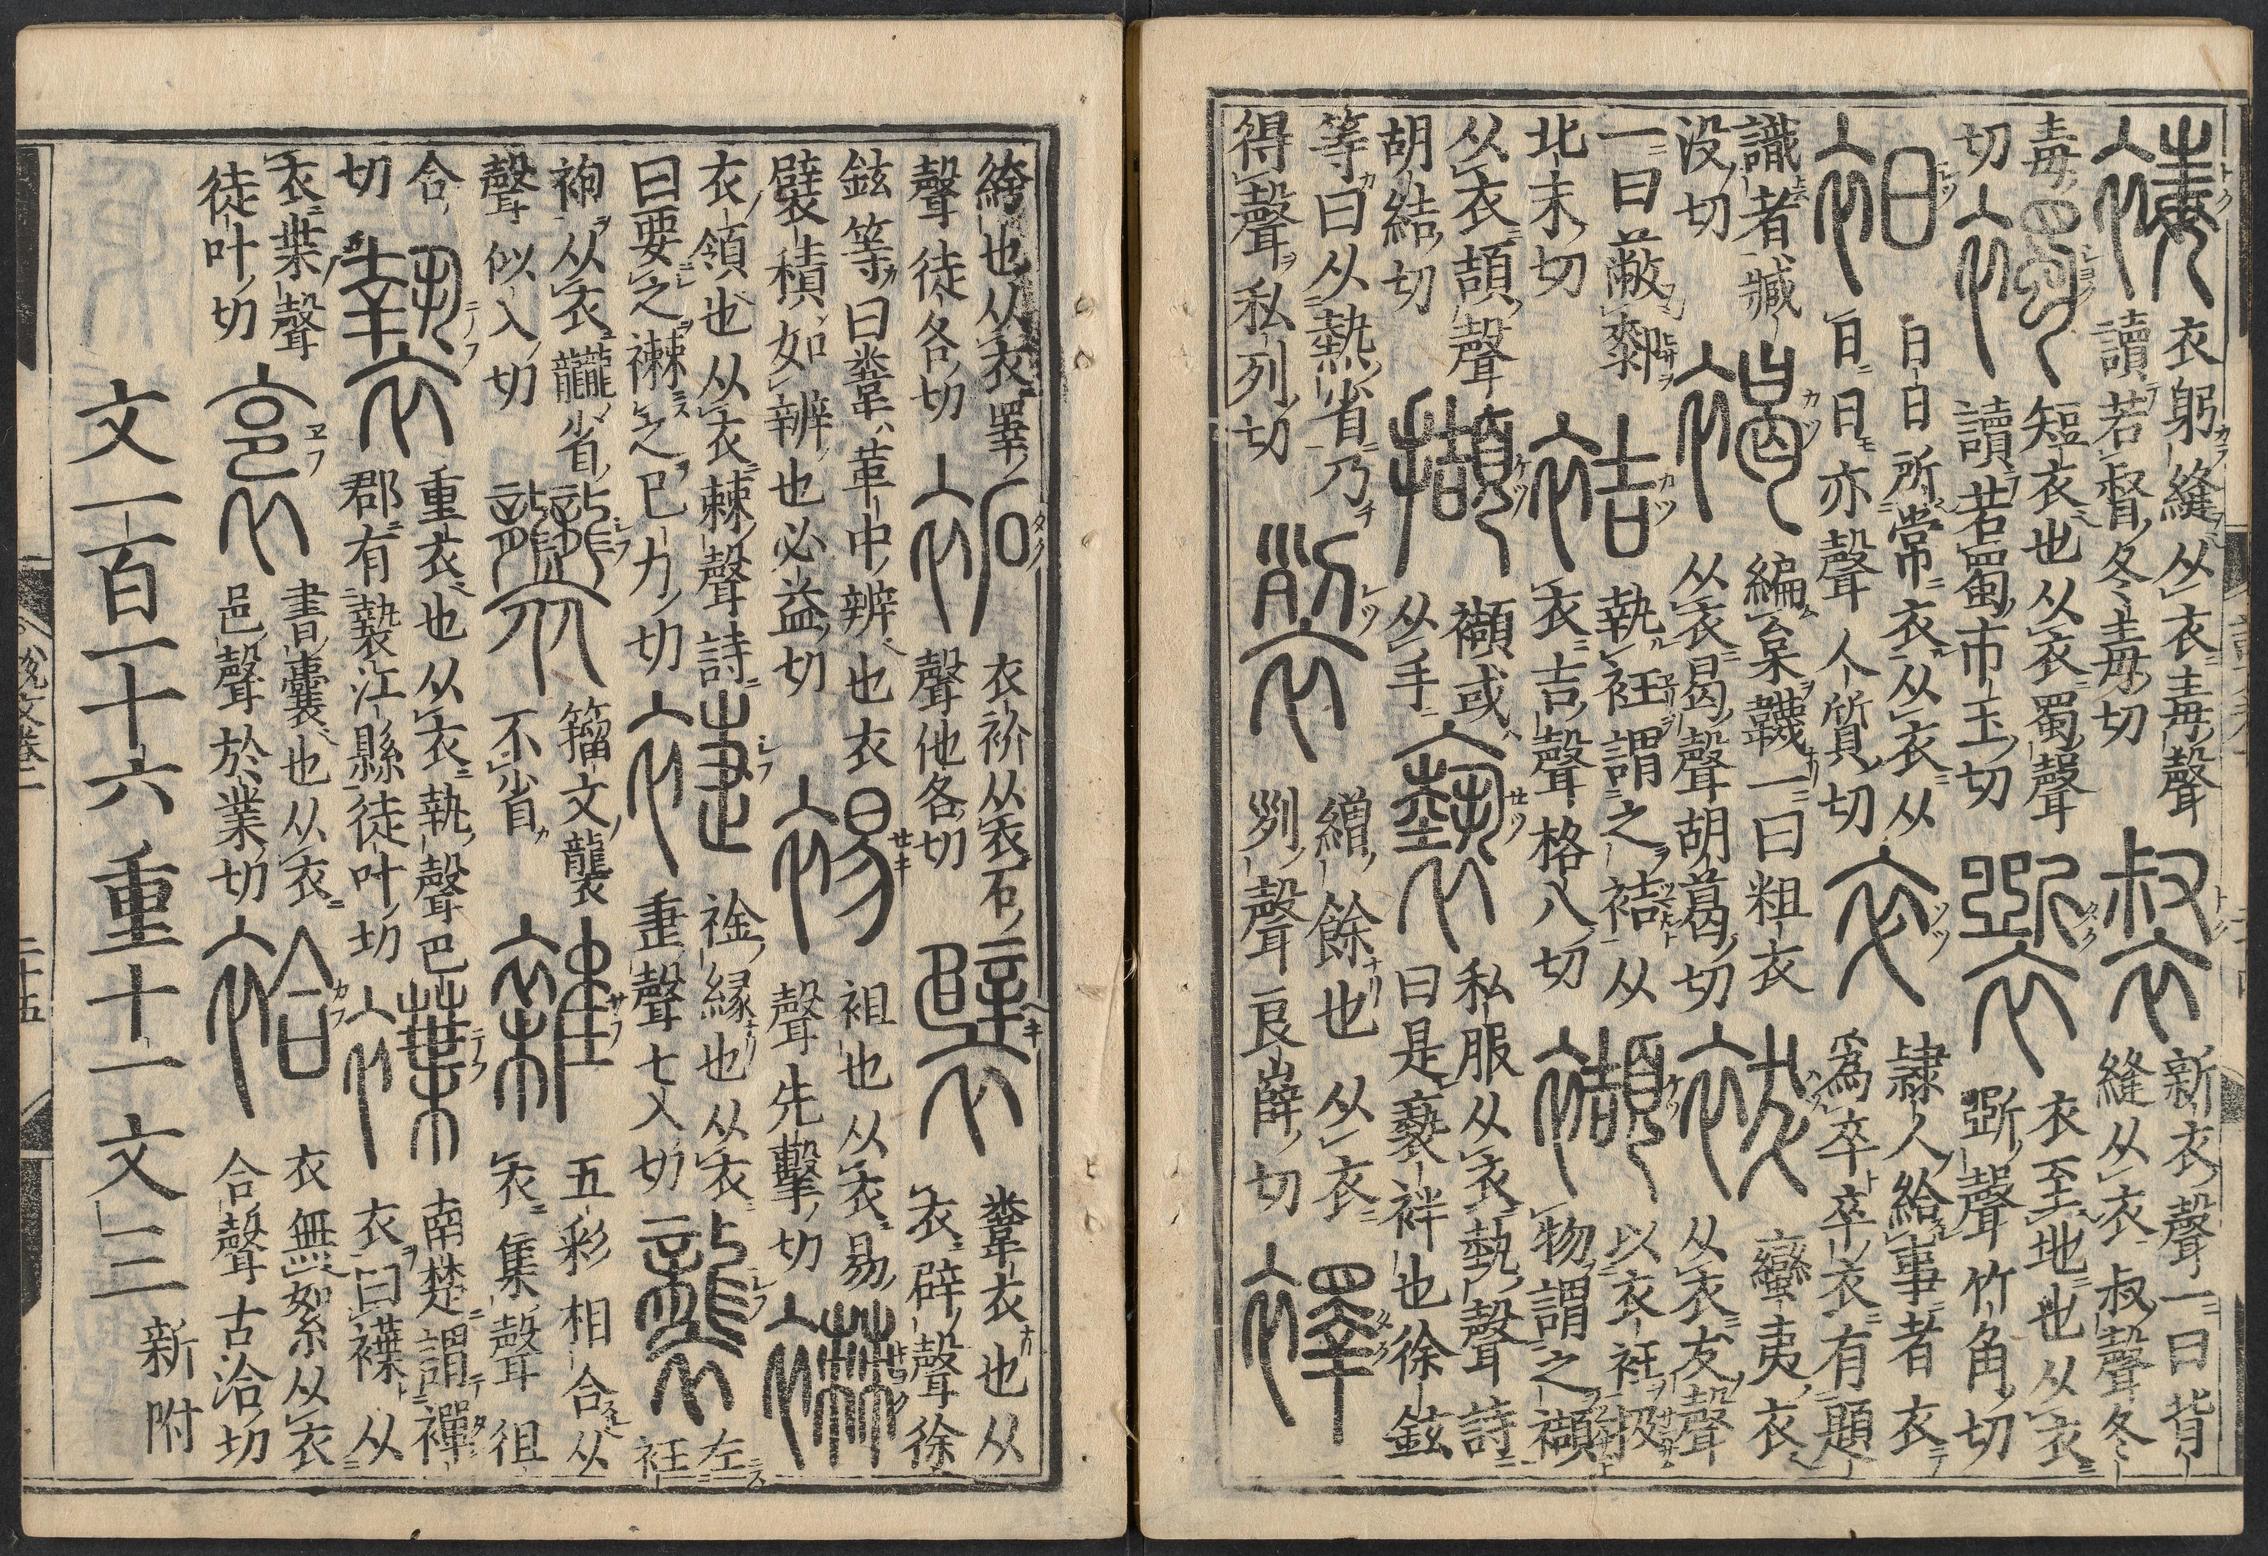 襩
衣躬縫从衣毒聲
讀若督冬毒切
裻
新衣聲一曰背
縫从衣叔聲冬
毒
切
襡
短衣也从衣蜀聲
讀若蜀市玉切
𧞤
衣至地也从衣
斲聲竹角切
衵
日日所常衣从衣从
日日亦聲人質切
卒
隸人給事者衣
爲卒卒衣有題
識者臧
没切
褐
編枲韤一曰粗衣
从衣曷聲胡葛切
袚
蠻夷衣
从衣犮聲
一曰蔽厀
北末切
袺
執衽謂之袺从
衣吉聲格八切
襭
以衣衽扱
物謂之襭
从衣頡聲
胡結切
擷
襭或
从手
褻
私服从衣埶聲詩
曰是褻袢也徐鉉
等曰从熱省乃
得聲私列切
裂
繒餘也从衣
𠛱聲良薛切
襗
絝也从衣睪
聲徒各切
袥
衣衸从衣石
聲他各切
襞
韏衣也从
衣辟聲徐
鉉等曰韏革中辨也衣
襞積如辨也必益切
裼
袒也从衣易
聲先擊切
襋
衣領也从衣棘聲詩
曰要之襋之巳力切
𧛩
䘳緣也从衣
疌聲七入切
襲
左
衽
袍从衣龖省
聲似入切
籀文襲
不省
雜
五彩相合从
衣集聲徂
合
切
褺
重衣也从衣執聲巴
郡有褺江縣徒叶切
褋
南楚謂襌
衣曰褋从
衣枼聲
徒叶切
裛
書囊也从衣
邑聲於業切
袷
衣無絮从衣
合聲古洽切
文一百一十六 重十一 文三 新附